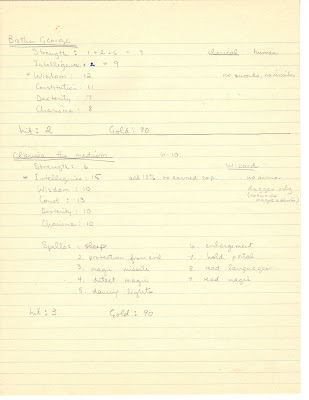 Brother George
Strength: 1+2+6 = 9 clerical human
Intelligence: 9
* Wisdom: 12 no swords, no
Constitution: 11
Dexterity: 7
Charisma: 8
hit: 2 Gold: 70
Clarissa the medium
Strength: 6 Wizard
* Intelligence: 15 add 10% to earned exp. no armor
Wisdom: 10 dagger only
Const: 13
Dexterity: 10
Charisma: 10
Spells: 1. sleep 6. enlargement
2. protection from evil 7. hold portal
3. magic missile 8. read languages
4. detect magic 9. read magic
5. dancing lights
hit: 3 Gold: 90